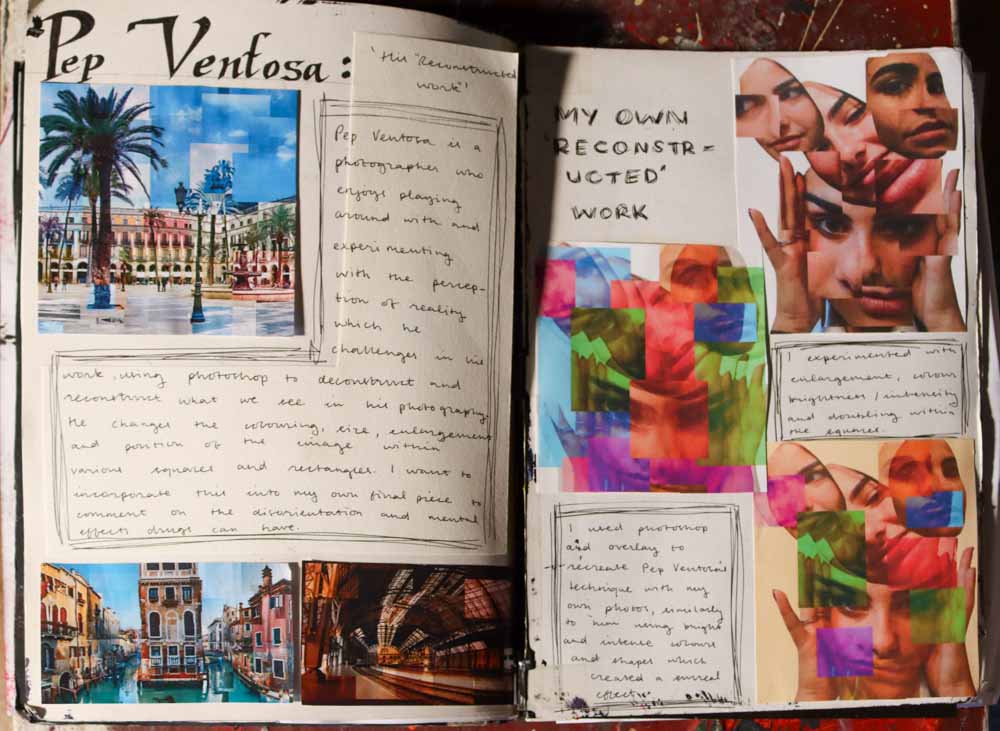 Pep Ventosa:
'His "Reconstructed
work"'
Pep Ventosa is a
photographer who
enjoys playing
around with and
experimenting
with the percep-
tion of reality
which he
challenges in his
work, using photoshop to deconstruct and
reconstruct what we see in his photography.
He changes the colouring, size, enlargement
and position of the image within
various squares and rectangles. I want to
incorporate this into my own final piece to
comment on the disorientation and mental
effects drugs can have.
MY OWN
'RECONSTR-
UCTED'
WORK
I experimented with
enlargement, colour
brightness/intensity
and doubling within
the squares.
I used photoshop
and overlay to
recreate Pep Ventosa's
technique with my
own photos, similarly
to him using bright
and intense colours
and shapes which
created a surreal
effect.